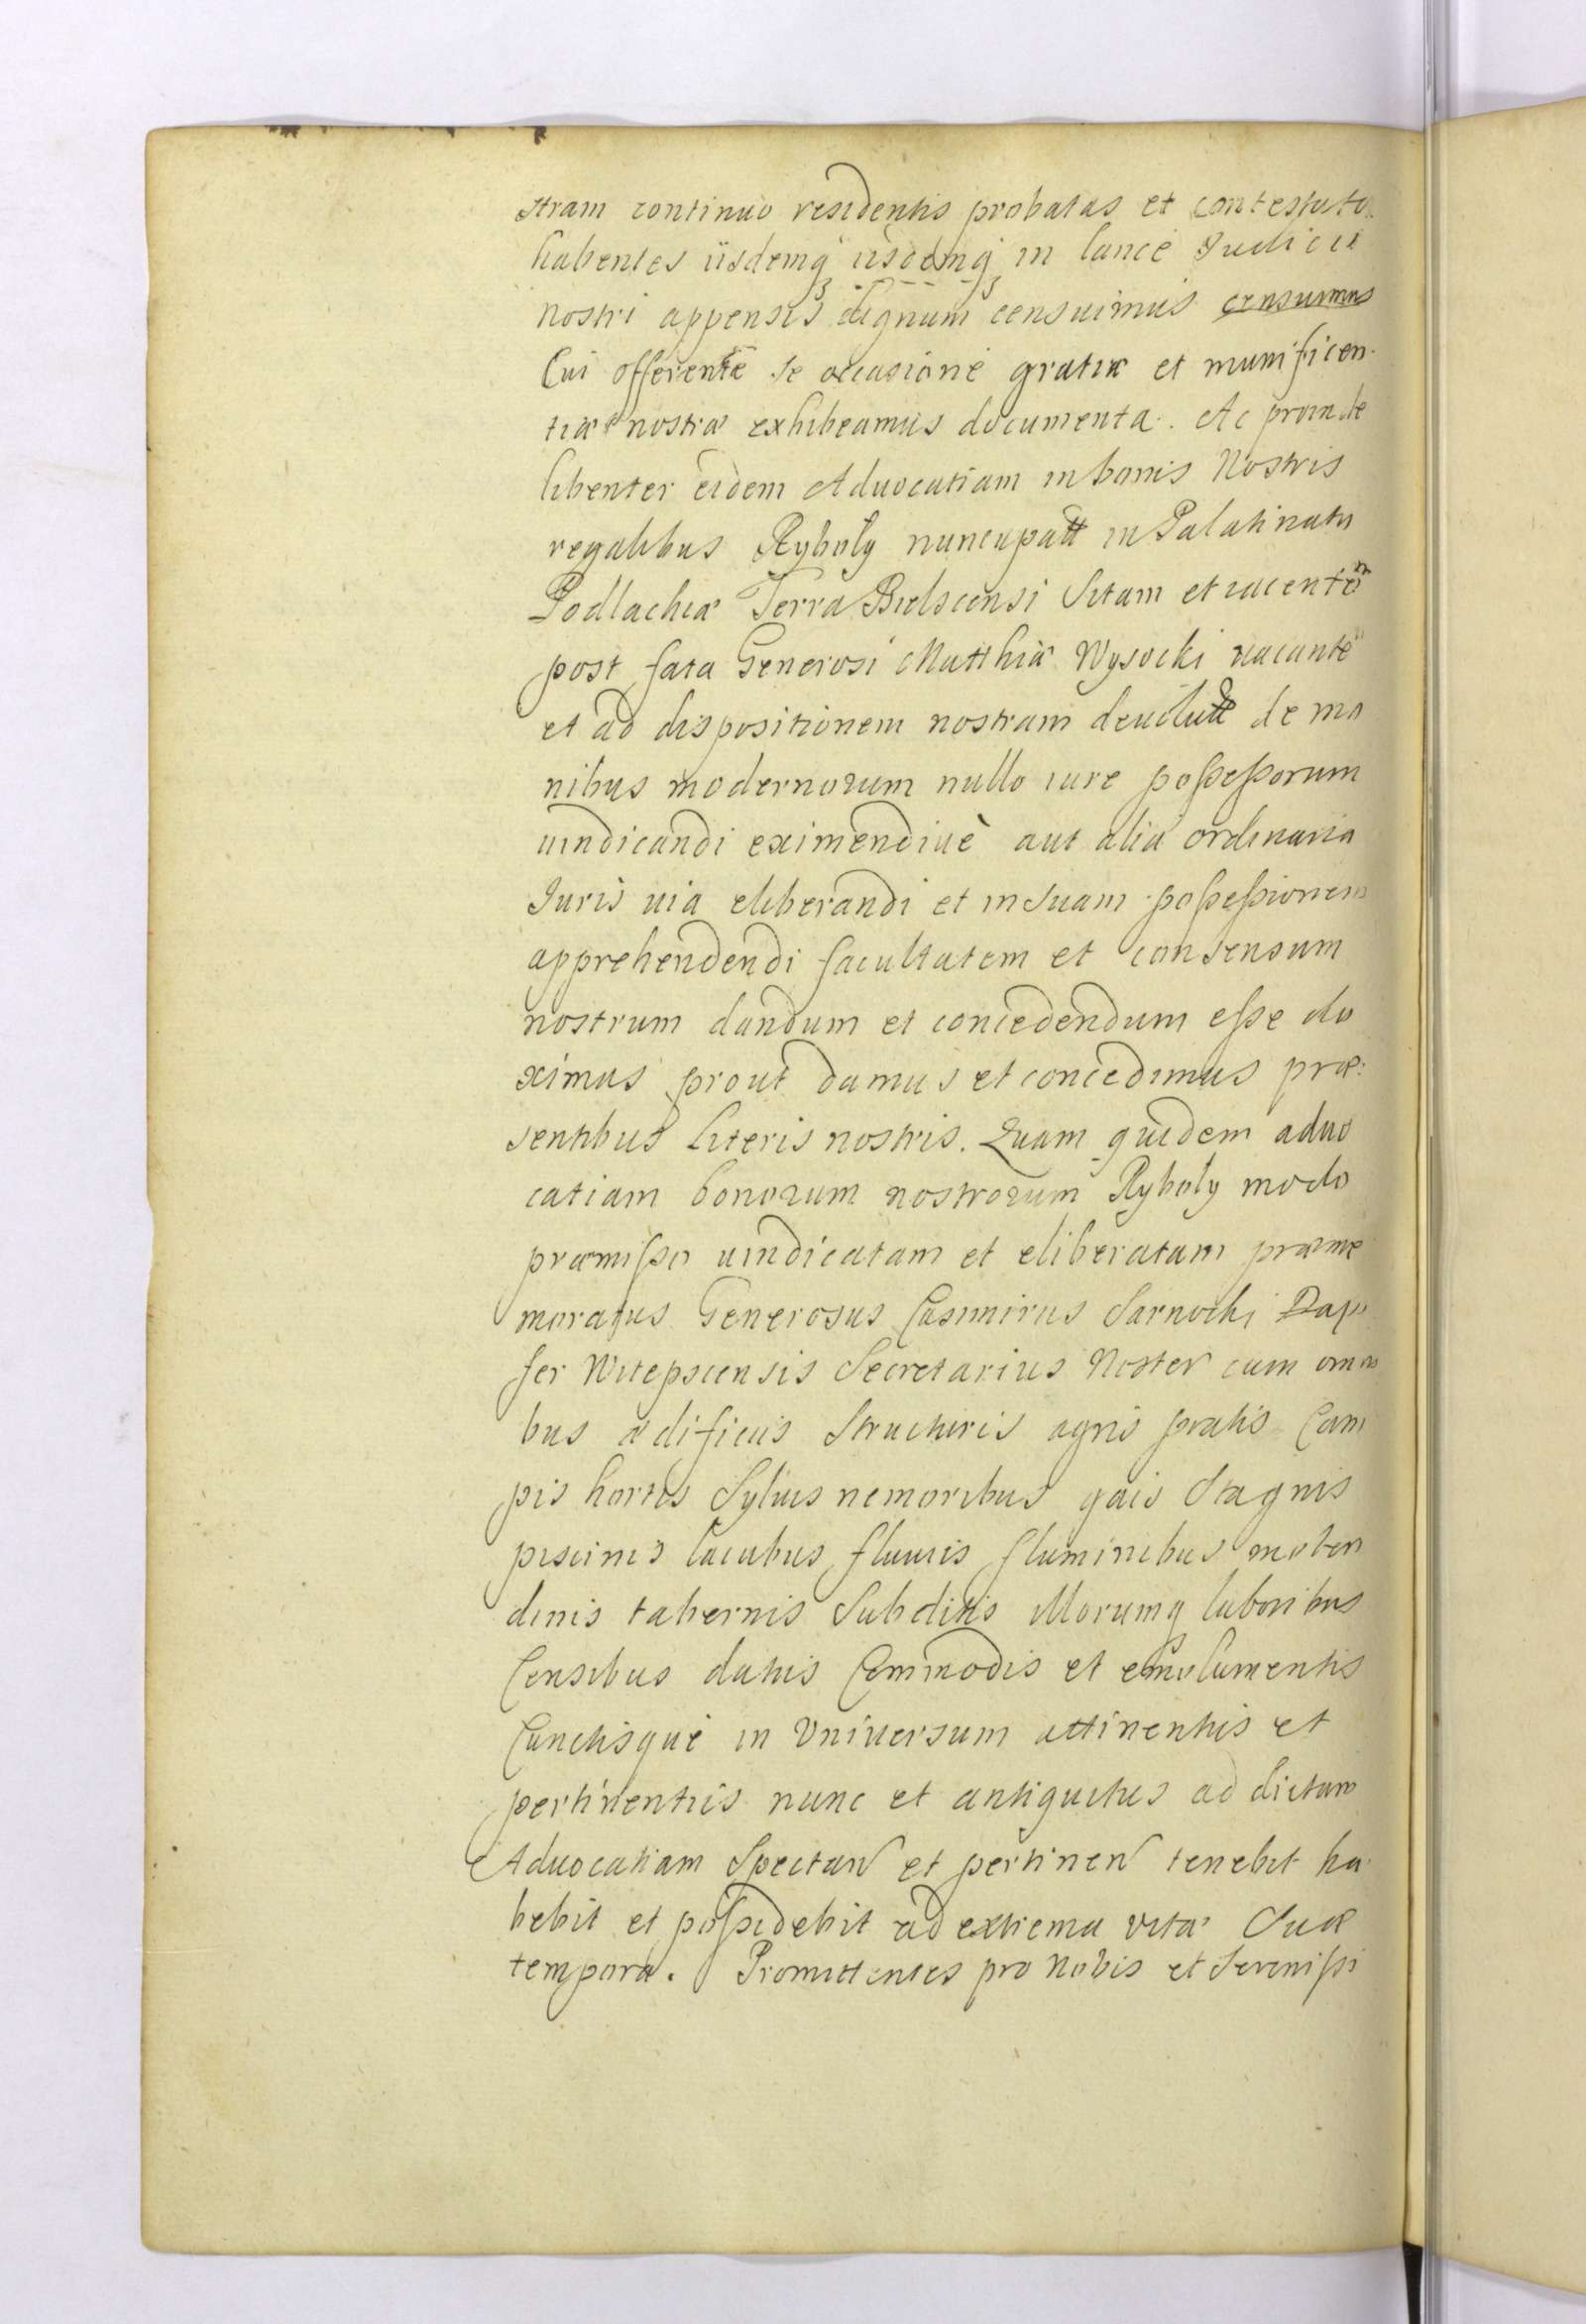 stram continuo residentis probatas et contestatas
habentes iisdemq iisdemq in lance Iudicii
nostri appensis dignum censuimus censuimus
Cui offerente se occasione gratiæ et munificen-
tiæ nostræ exhibeamus documenta. Ac proinde
libenter eidem Advocatiam in bonis Nostris
regalibus Ryboly nuncupatt in Palatinatu
Podlachiæ Terra Bielscensi Sitam et iacentem
post fata Generosi Matthiæ Wysocki vacante
et ad dispositionem nostram devolutt de ma
nibus modernorum nullo iure possessorum
uindicandi eximendivè aut aliâ ordinaria
Iuris uia eliberandi et in suam possessionem
apprehendendi facultatem et consensum
nostrum dandum et concedendum esse du
ximus prout damus et concedimus præ:
sentibus literis nostris. Quam quidem aduo
catiam bonorum nostrorum Ryboly modo
præmisso uindicatam et eliberatam præme
moratus Generosus Casimirus Sarnocki Dapi
fer Witepscensis Secretarius Noster cum omni
bus ædificiis Structuris agris pratis Cam
pis hortis Syluis nemoribus gais Stagnis
piscinis lacubus fluuiis fluminibus molen
dinis tabernis Subditis Illorumq laboribus
Censibus datiis Commodis et emolumentis
Cunctisque in Vniuersum attinentiis et
pertinentiis nunc et antiquitus ad dictam
Aduocatiam Spectan et pertinen tenebit ha
bebit et possidebit ad extrema vitæ Suæ
tempora. Promittentes pro Nobis et Serenissi